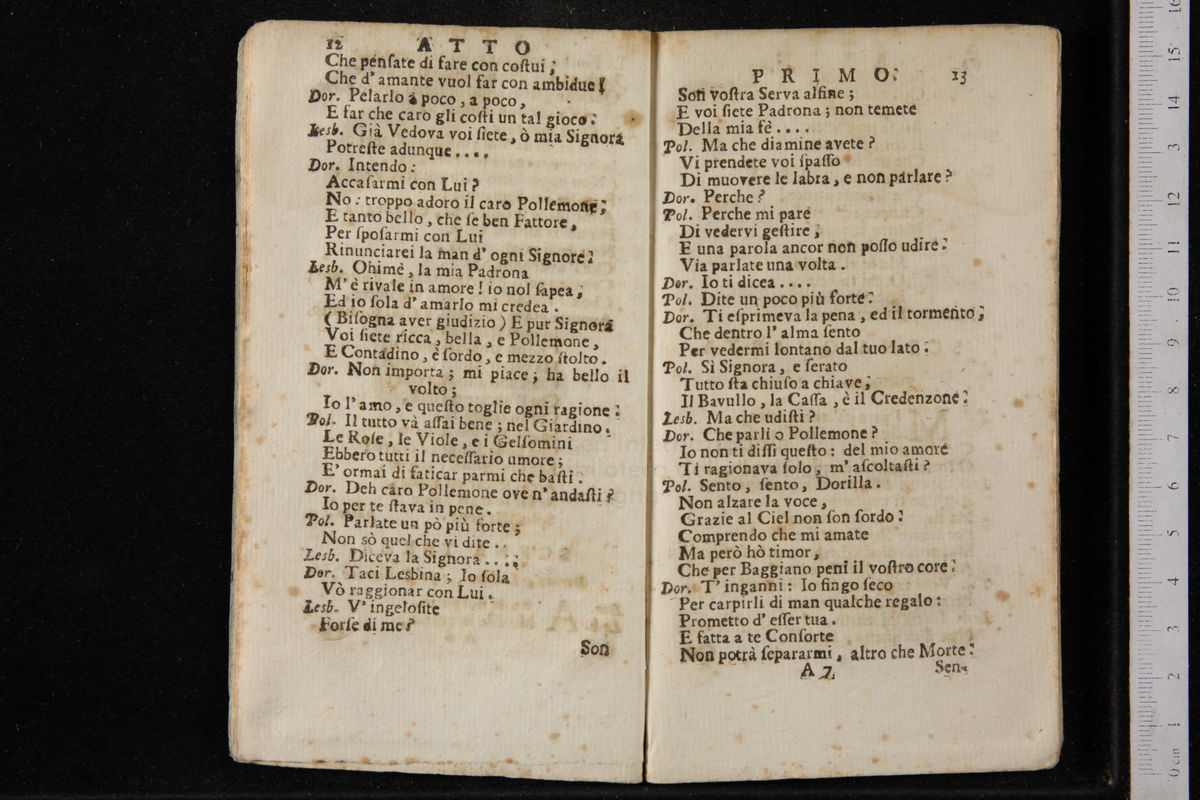 12 ATTO
Che penſate di fare con coſtui;
Che d'amante vuol far con ambidue?
Dor. Pelarlo a poco, a poco,
E far che caro gli coſti un tal gioco.
Lesb. Già Vedova voi ſiete, ò mia Signora
Potreſte adunque....
Dor. Intendo:
Accaſarmi con Lui?
No: troppo adoro il caro Pollemone;
E tanto bello, che ſe ben Fattore,
Per ſpoſarmi con Lui
Rinunciarei la man d'ogni Signore.
Lesb. Ohimè, la mia Padrona
M'è rivale in amore! io nol ſapea;
Ed io ſola d'amarlo mi credea.
(Biſogna aver giudizio) E pur Signora
Voi ſiete ricca, bella, e Pollemone,
E Contadino, è ſordo, e mezzo ſtolto.
Dor. Non importa; mi piace; ha bello il
volto;
Io l'amo, e queſto toglie ogni ragione.
Pol. Il tutto và aſſai bene; nel Giardino.
Le Roſe, le Viole, e i Gelſomini
Ebbero tutti il neceſſario umore;
E' ormai di faticar parmi che baſti.
Dor. Deh caro Pollemone ove n'andaſti?
Io per te ſtava in pene.
Pol. Parlate un pò più forte;
Non sò quel che vi dite..
Lesb. Diceva la Signora....
Dor. Taci Lesbina; Io ſola
Vò raggionar con Lui.
Lesb. V'ingeloſite
Forſe di me?
Son
PRIMO. 13
Son voſtra Serva alfine;
E voi ſiete Padrona; non temete
Della mia fè....
Pol. Ma che diamine avete?
Vi prendete voi ſpaſſo
Di muovere le labra, e non parlare?
Dor. Perche?
Pol. Perche mi pare
Di vedervi geſtire;
E una parola ancor non poſſo udire.
Via parlate una volta.
Dor. Io ti dicea....
Pol. Dite un poco più forte.
Dor. Ti eſprimeva la pena, ed il tormento;
Che dentro l'alma ſento
Per vedermi lontano dal tuo lato.
Pol. Sì Signora, e ſerato
Tutto ſta chiuſo a chiave;
Il Bavullo, la Caſſa, è il Credenzone.
Lesb. Ma che udiſti?
Dor. Che parli o Pollemone?
Io non ti diſſi queſto: del mio amore
Ti ragionava ſolo, m'aſcoltaſti?
Pol. Sento, ſento, Dorilla.
Non alzare la voce,
Grazie al Ciel non ſon ſordo.
Comprendo che mi amate
Ma però hò timor,
Che per Baggiano peni il voſtro core.
Dor. T'inganni: Io fingo ſeco
Per carpirli di man qualche regalo:
Prometto d'eſſer tua.
E fatta a te Conſorte
Non potrà ſepararmi, altro che Morte.
A 7 Sen-